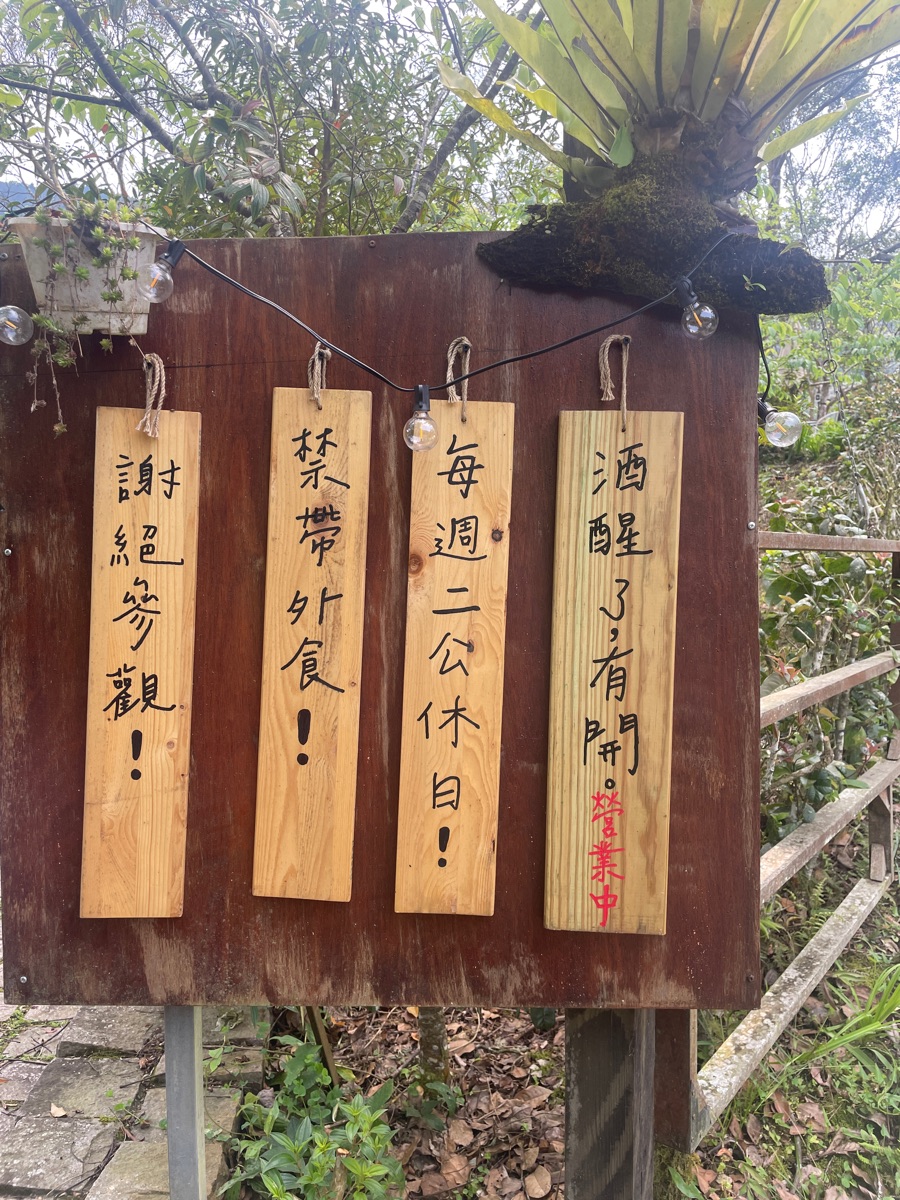 酒醒了,有開。營業中
每週二公休日!
禁帶外食!
謝絕參觀!